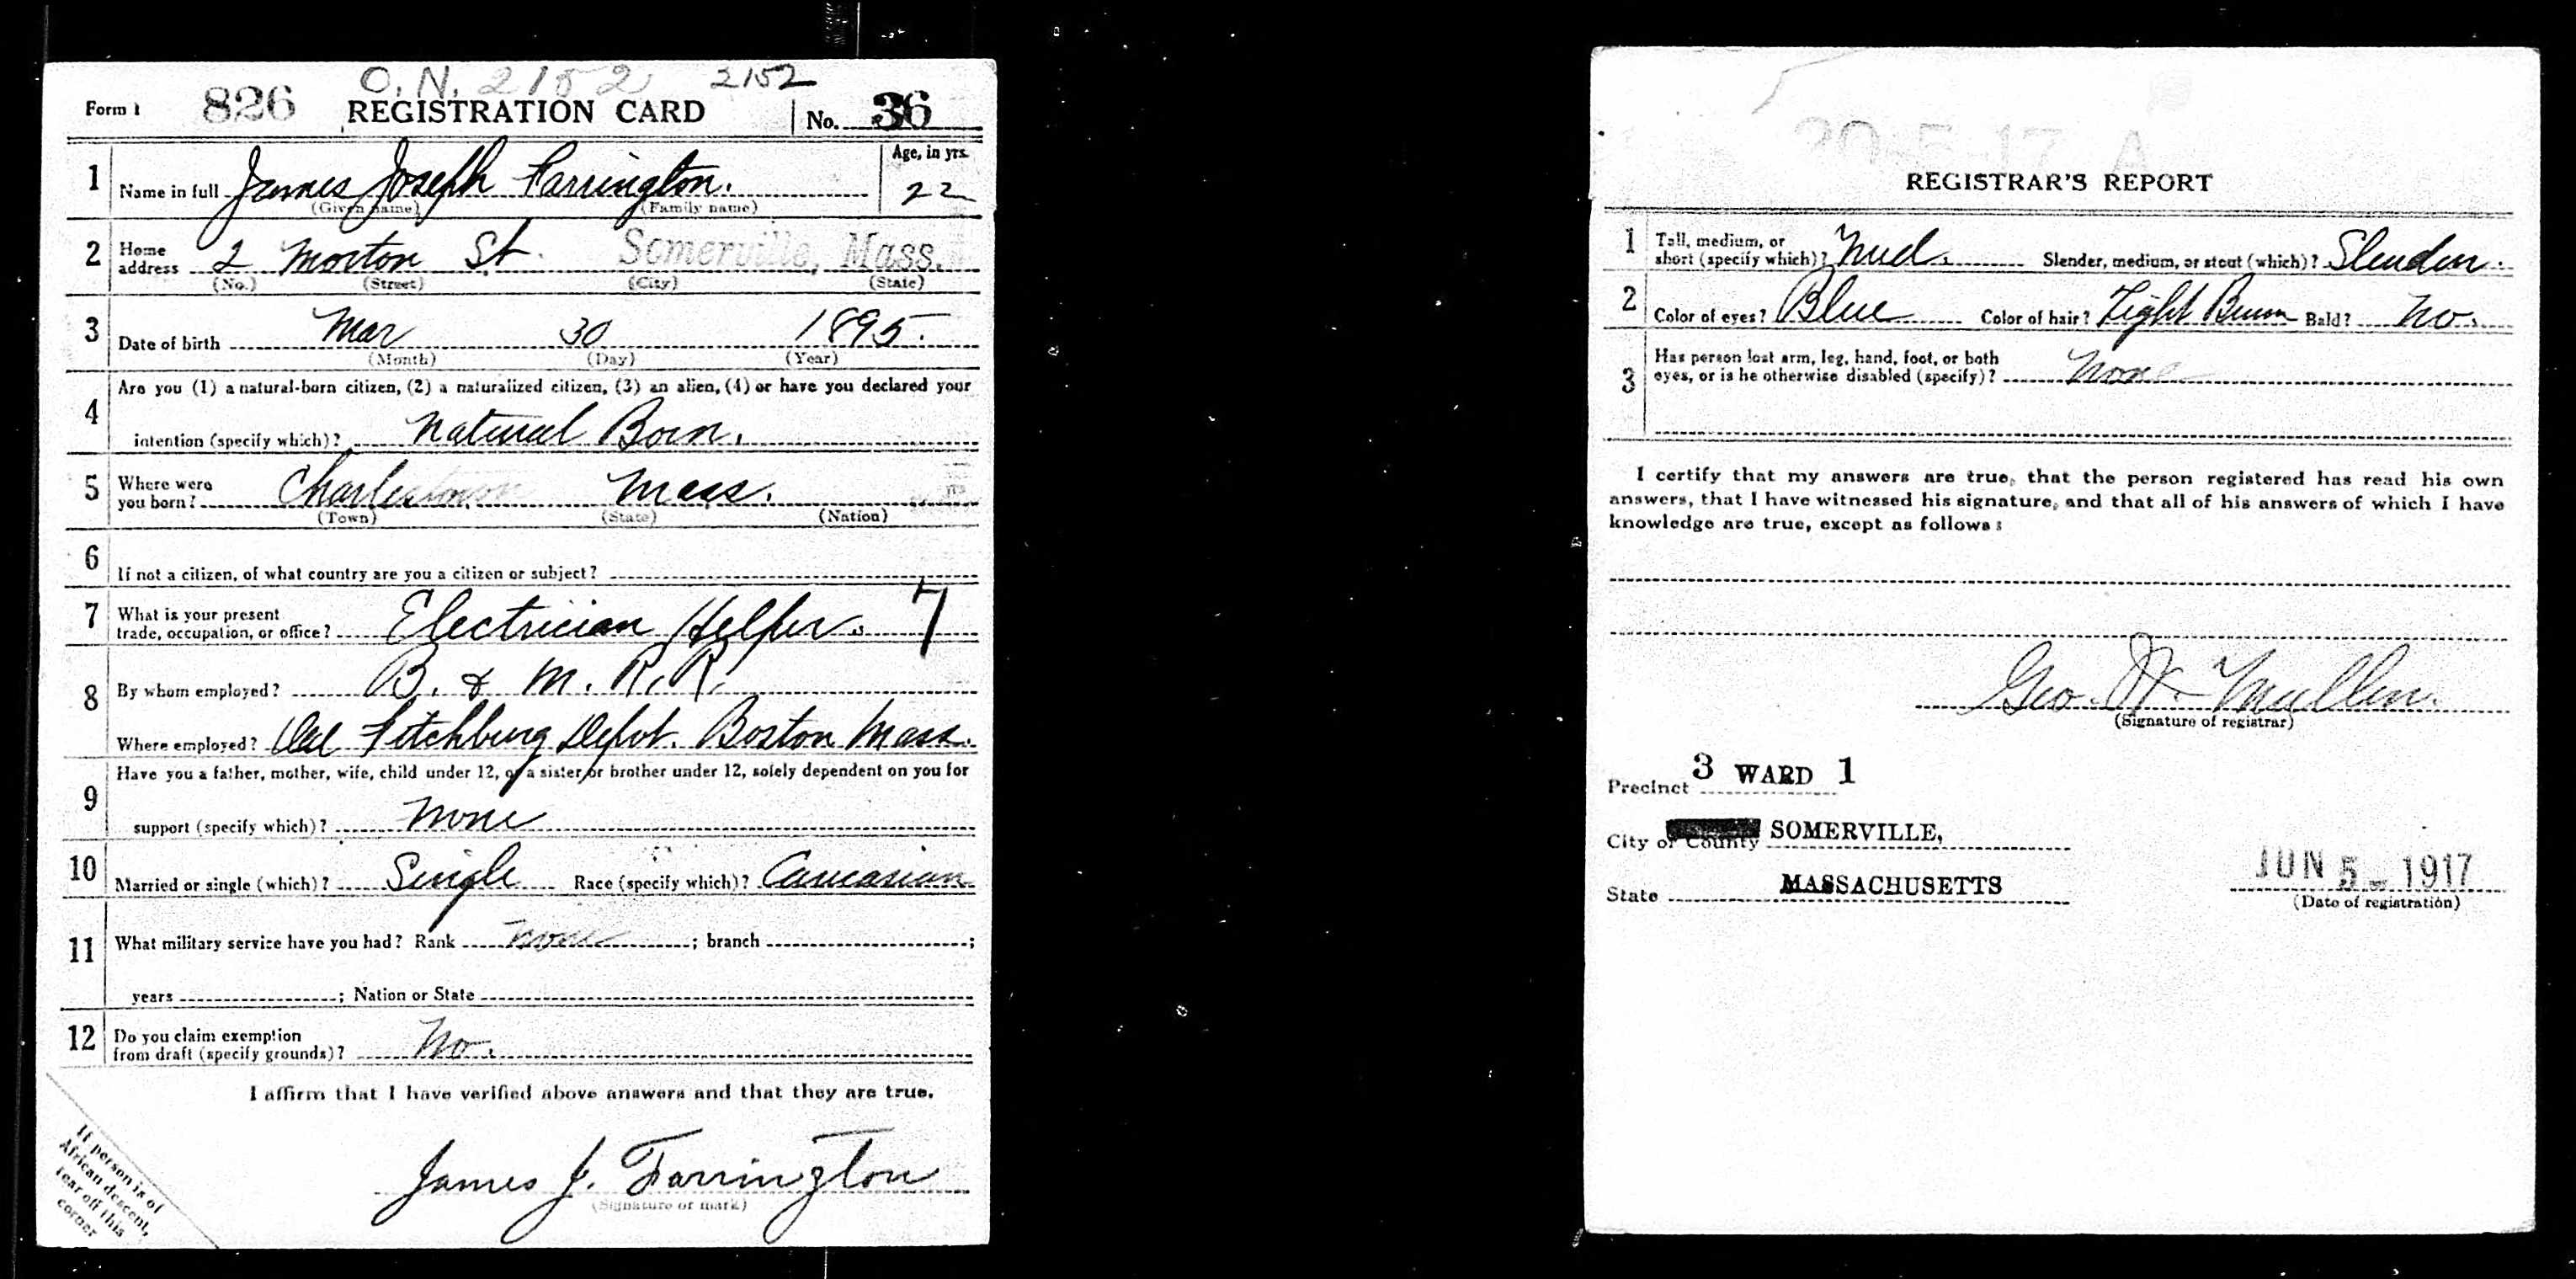 O.N. 2152 2152
Form 1 826 REGISTRATION CARD No. 36
1 Name in full James Joseph Farrington. Age, in yrs. 22
(Given name) (Family name)
2 Home address 2 Morton St. Somerville, Mass.
(No.) (Street) (City) (State)
3 Date of birth Mar 30 1895.
(Month) (Day) (Year)
4 Are you (1) a natural-born citizen, (2) a naturalized citizen, (3) an alien, (4) or have you declared your
intention (specify which)? Natural Born.
5 Where were you born? Charlestown Mass.
(Town) (State) (Nation)
6 If not a citizen, of what country are you a citizen or subject?
7 What is your present trade, occupation, or office? Electrician Helper. 7
8 By whom employed? B. & M. R.R.
Where employed? Old Fitchburg Depot. Boston Mass.
9 Have you a father, mother, wife, child under 12, or a sister or brother under 12, solely dependent on you for
support (specify which)? None
10 Married or single (which)? Single Race (specify which)? Caucasian
11 What military service have you had? Rank None ; branch ;
years ; Nation or State
12 Do you claim exemption from draft (specify grounds)? No.
I affirm that I have verified above answers and that they are true.
James J. Farrington
(Signature or mark)
If person is of
African descent,
tear off this
corner
REGISTRAR'S REPORT
1 Tall, medium, or short (specify which)? Med. Slender, medium, or stout (which)? Slender.
2 Color of eyes? Blue Color of hair? Light Brown Bald? No.
3 Has person lost arm, leg, hand, foot, or both
eyes, or is he otherwise disabled (specify)? None
I certify that my answers are true, that the person registered has read his own
answers, that I have witnessed his signature, and that all of his answers of which I have
knowledge are true, except as follows:
Geo. W. Mullen.
(Signature of registrar)
Precinct 3 WARD 1
City or County SOMERVILLE,
State MASSACHUSETTS
JUN 5 - 1917
(Date of registration)